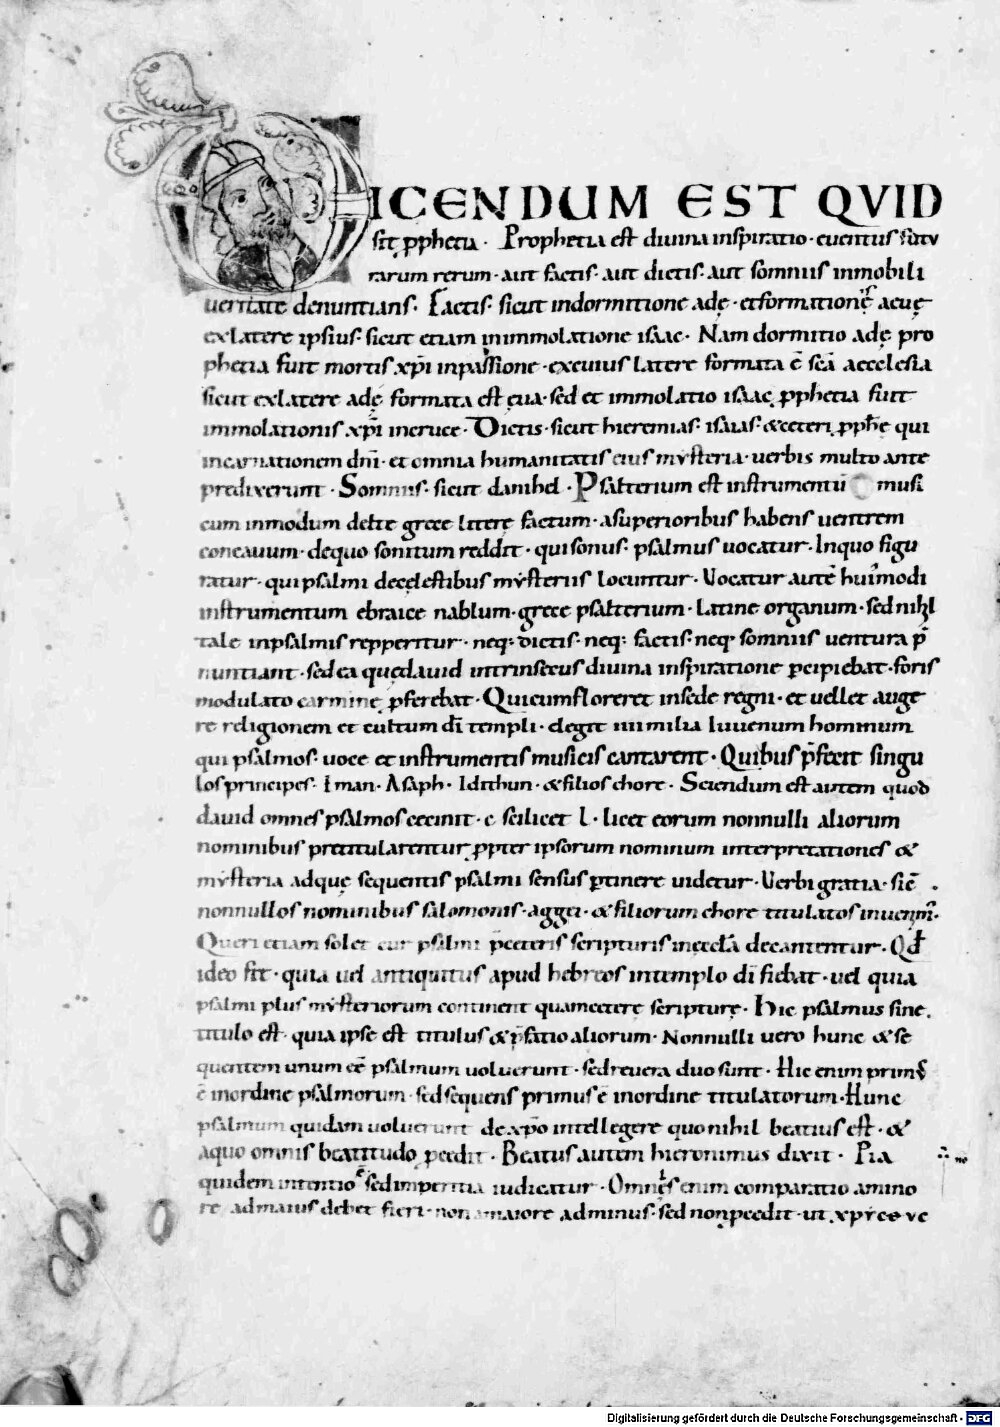 DICENDUM EST QVID
sit p̱phetia · Prophetia est diuina inspiratio · euentus futu
rarum rerum · aut factis · aut dictis · aut somniis inmobili
ueritate denuntians · Factis · sicut indormitione adę · etformationęs aeuę
exlatere ipsius · sicut etiam inimmolatione isaac · Nam dormitio adę pro
phetia fuit mortis xp̄i inpassione · excuius latere formata ē sc̄a aecclesia
sicut exlatere adę formata est eua · sed et immolatio isaac p̱phetia fuit
immolationis xp̄i incruce · Dictis · sicut hieremias · isaias · &ceteri p̱phę qui
incarnationem dn̄i · et omnia humanitatis eius mysteria · uerbis multo ante
predixerunt · Somniis · sicut danihel · Psalterium est instrumentū musi
cum inmodum delte grece littere factum · asuperioribus habens uentrem
concauum · dequo sonitum reddit · qui sonus · psalmus uocatur · Inquo figu
ratur · qui psalmi decęlestibus mysteriis locuntur · Uocatur autē hui'modi
instrumentum ebraice nablum · grece psalterium · latine organum · sed nihil
tale inpsalmis repperitur · neq; dictis · neq; factis · neq; somniis uentura p̄
nuntiant · sed ea quędauid intrinsecus diuina inspiratione p̱cipiebat · foris
modulato carmine p̱ferebat · Quicumfloreret insede regni · et uellet auge
re religionem et cultum dī templi · elegit iiii milia iuuenum hominum
qui psalmos · uoce et instrumentis musicis cantarent · Quibus p̄fecit singu
los principes · Eman · Asaph · Idithun · &filios chore · Sciendum est autem quod
dauid omnes psalmos cecinit · c scilicet l · licet eorum nonnulli aliorum
nominibus pretitularentur p̱pter ipsorum nominum interpretationes &
mysteria adque sequentis psalmi sensus p̱tinere uidetur · Uerbi gratia · sic̄
nonnullos nominibus salomonis · aggei · & filiorum chore titulatos inuenim' ·
Queri etiam solet cur psalmi p̱ceteris scripturis inęccl̄a decantentur · Qd̄
ideo fit · quia uel antiquitus apud hebreos intemplo dī fiebat · uel quia
psalmi plus mysteriorum continent quamcetere scripturę · Hic psalmus sine
titulo est · quia ipse est titulus & p̄fatio aliorum · Nonnulli uero hunc & se
quentem unum eē psalmum uoluerunt · sedreuera duo sunt · Hic enim prim'
ē inordine psalmorum · sed sequens primus ē inordine titulatorum · Hunc
psalmum quidam uoluerunt dexp̄o intellegere quo nihil beatius est · &
aquo omnis beatitudo p̱cedit · Beatus autem hieronimus dixit · Pia
quidem intentio sed imperitia iudicatur · Omnes enim comparatio amino
re admaius debet fieri · non amaiore adminus · sed non p̱cedit · ut xp̄ice uc